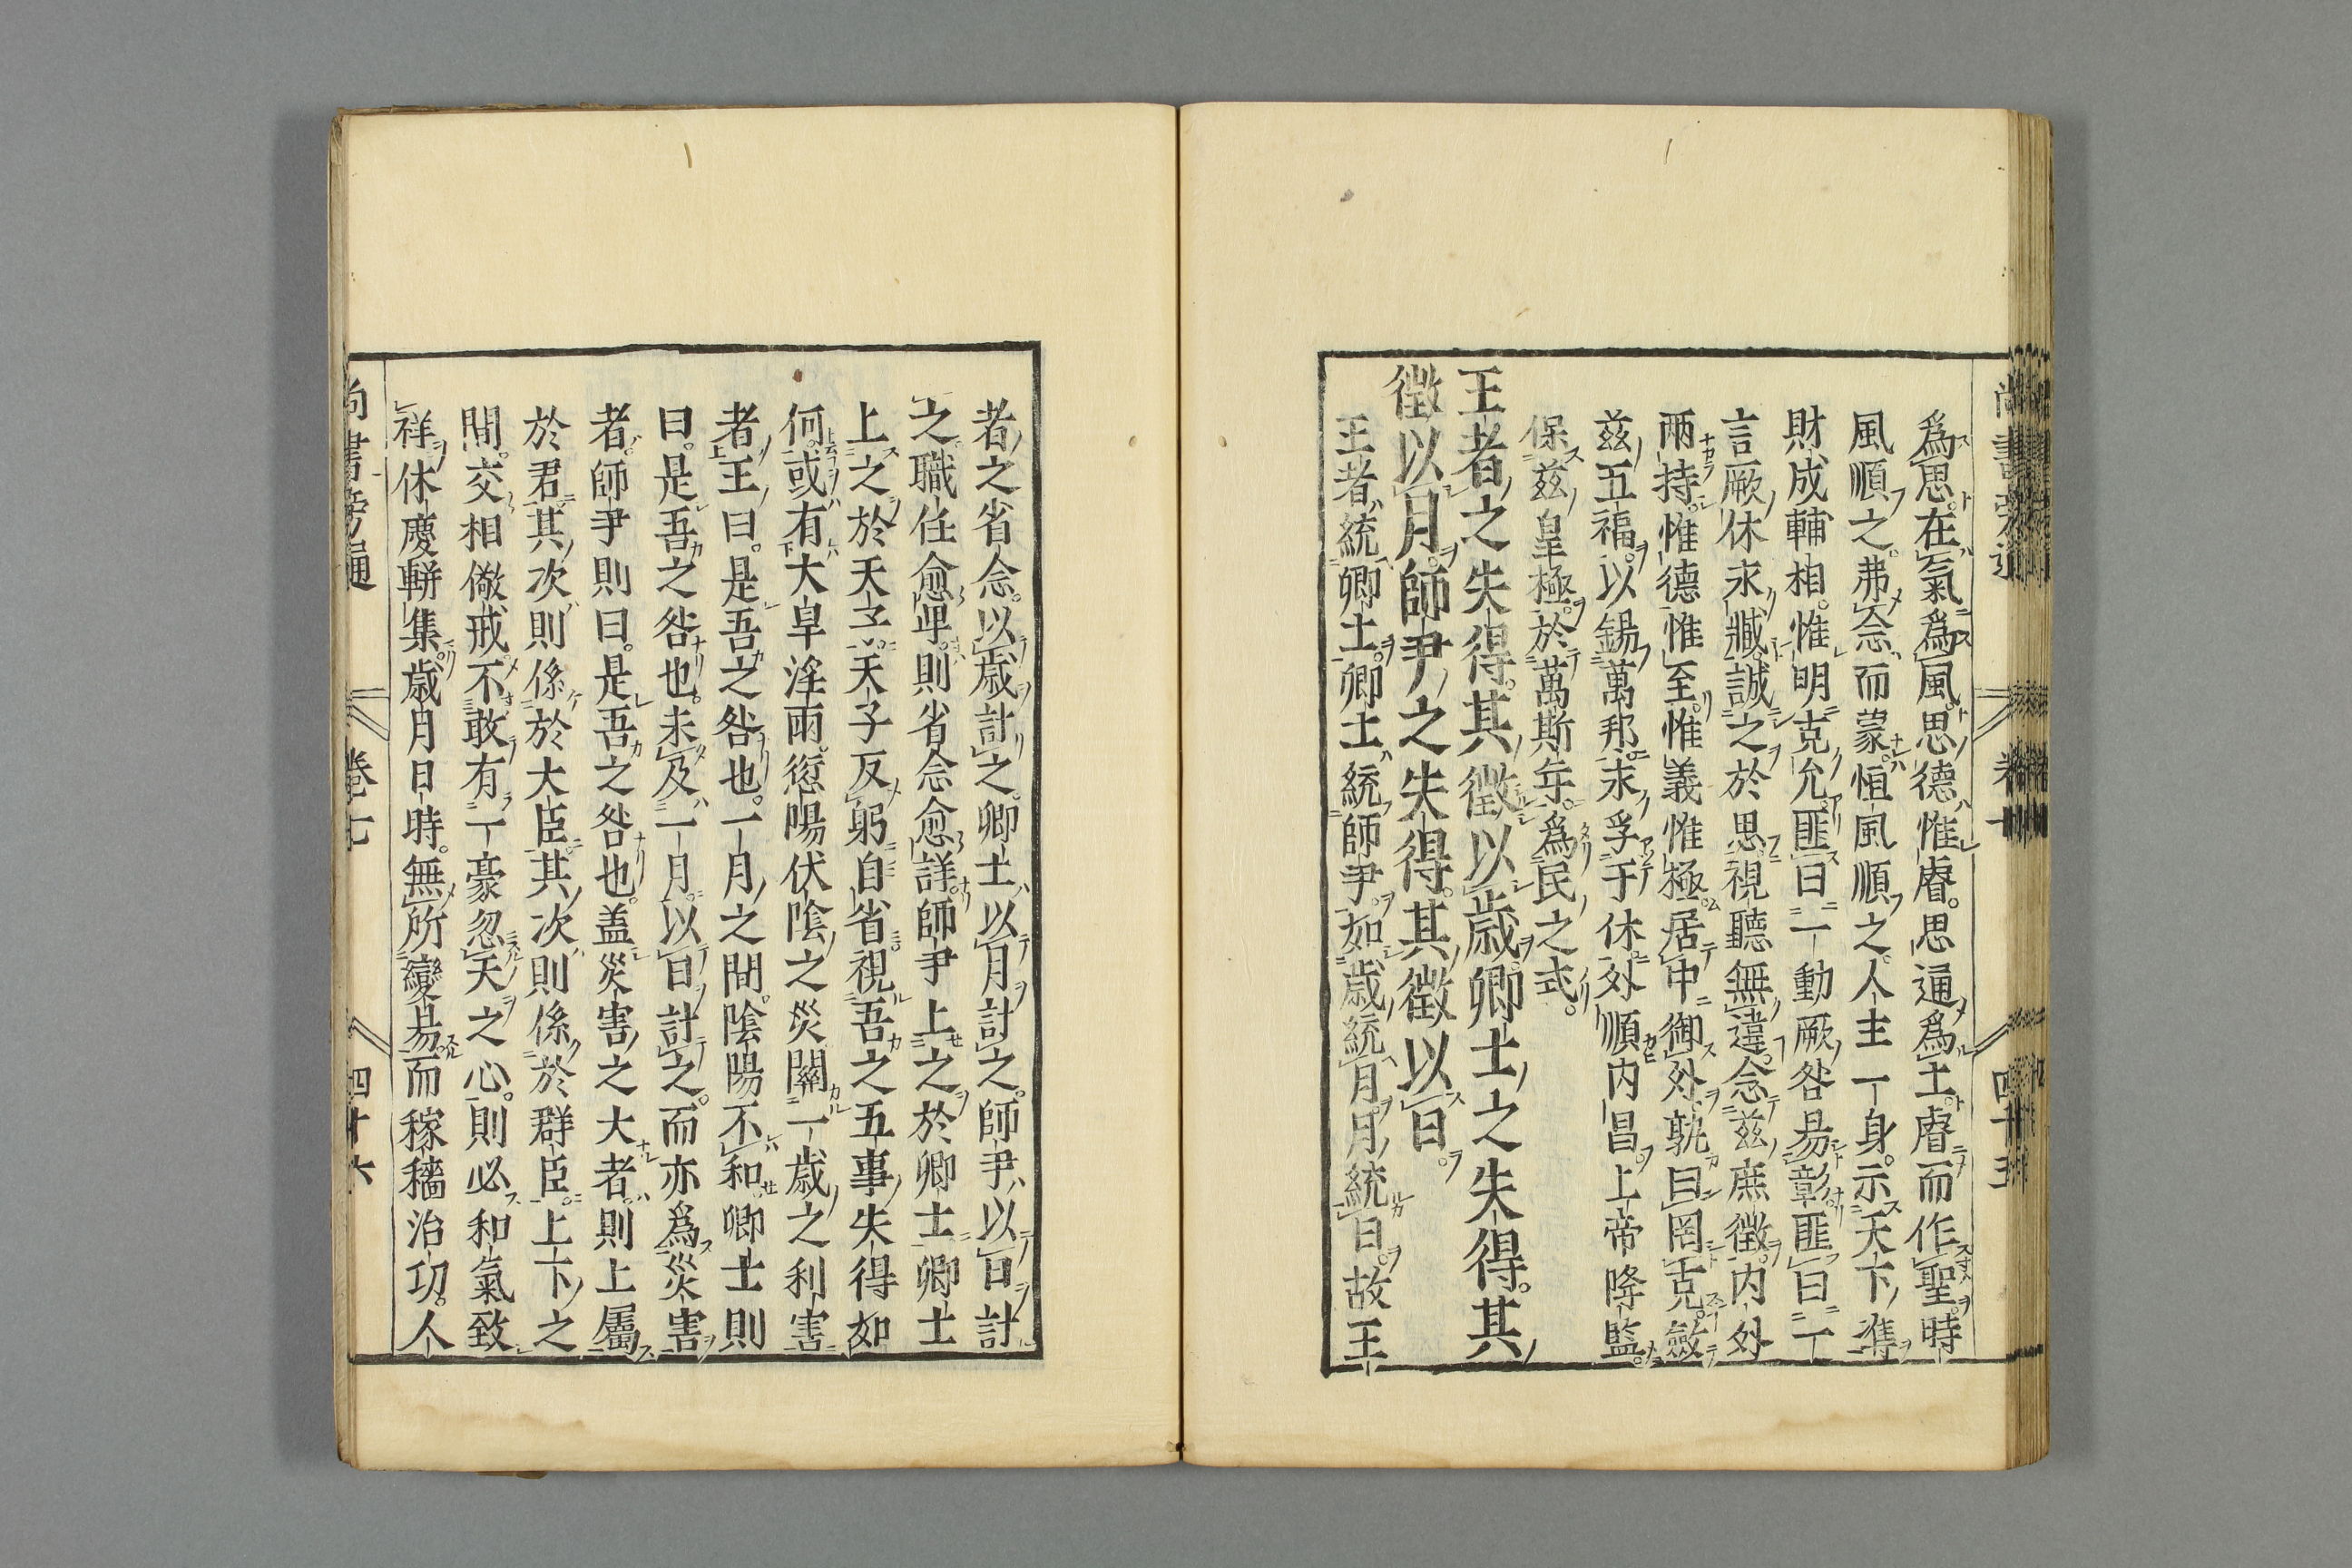 爲思在氣爲風思德惟睿思通爲土睿而作聖時
風順之弗念而蒙恒風順之人主一身示天下準
財成輔相惟明克允匪曰一動厥咎易彰匪曰一
言厥休求臧誠之於思視聽無違念兹庶徵内外
兩持惟德惟至惟義惟極居中御外孰曰罔克斂
兹五福以錫萬邦求孚于休外順内昌上帝降監
保兹皇極於萬斯年爲民之式
王者之失得其徵以歳卿士之失得其
徵以月師尹之失得其徵以日
王者統卿士卿士統師尹如歳統月月統日故王
者之省念以歳計之卿士以月計之師尹以日計
之職任愈卑則省念愈詳師尹上之於卿士卿士
上之於天子天子反躬自省視吾之五事失得如
何或有大旱淫雨愆陽伏陰之災關一歳之利害
者王曰是吾之咎也一月之間陰陽不和卿士則
曰是吾之咎也未及一月以日計之而亦爲災害
者師尹則曰是吾之咎也盖災害之大者則上屬
於君其次則係於大臣其次則係於群臣上下之
間交相儆戒不敢有一豪忽天之心則必和氣致
祥休慶駢集歳月日時無所變易而稼穡治功人
尚書旁通 卷七 四十六